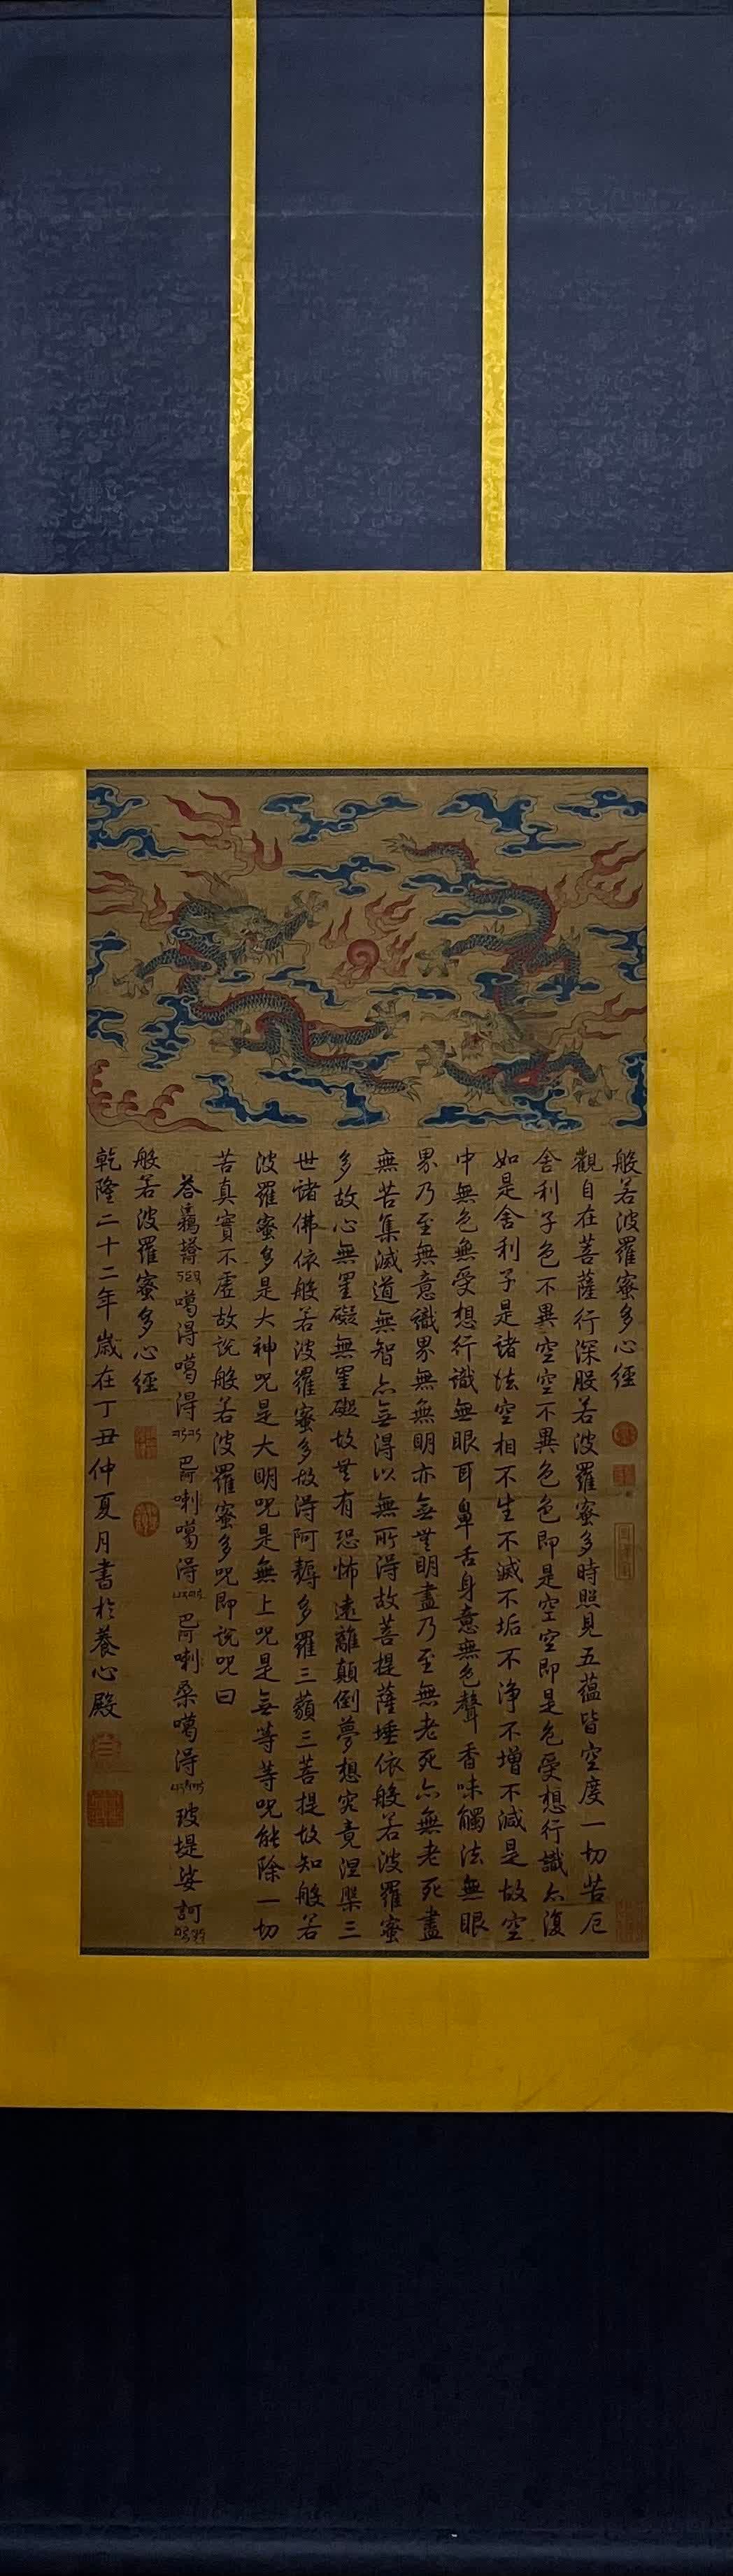 般若波羅蜜多心經
觀自在菩薩行深般若波羅蜜多時照見五蘊皆空度一切苦厄
舍利子色不異空空不異色色即是空空即是色受想行識亦復
如是舍利子是諸法空相不生不滅不垢不淨不增不減是故空
中無色無受想行識無眼耳鼻舌身意無色聲香味觸法無眼
界乃至無意識界無無明亦無無明盡乃至無老死亦無老死盡
無苦集滅道無智亦無得以無所得故菩提薩埵依般若波羅蜜
多故心無罣礙無罣礙故無有恐怖遠離顛倒夢想究竟涅槃三
世諸佛依般若波羅蜜多故得阿耨多羅三藐三菩提故知般若
波羅蜜多是大神咒是大明咒是無上咒是無等等咒能除一切
苦真實不虛故說般若波羅蜜多咒即說咒曰
答噶得噶得巴阿喇噶得巴阿喇桑噶得玻提娑訶
般若波羅蜜多心經
乾隆二十二年歲在丁丑仲夏月書於養心殿